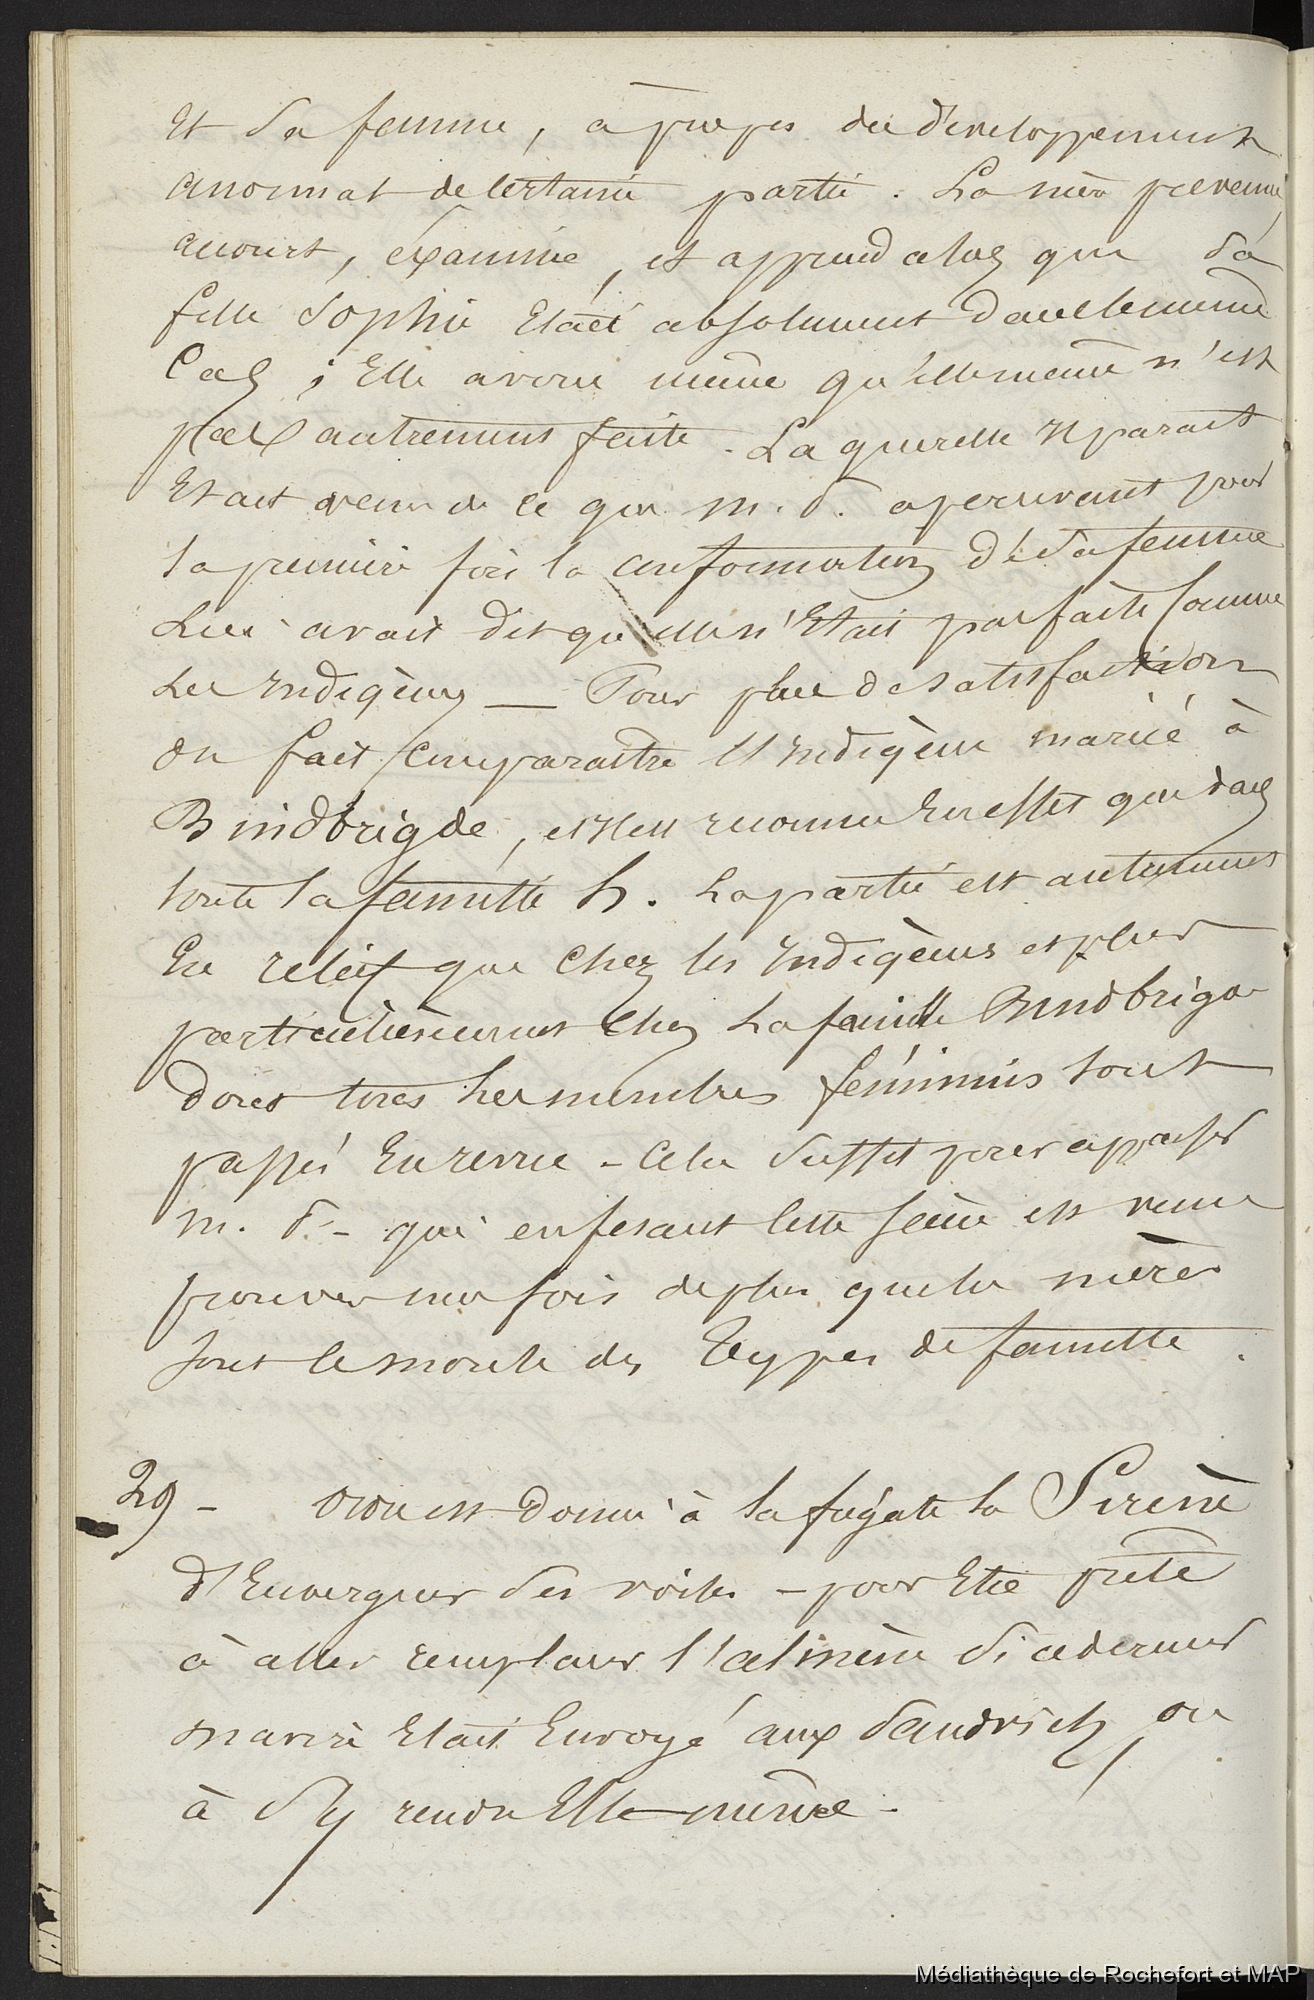 et sa femme, à propos du développement
anormal de certaine partie. La mère prévenue,
acourt, examine, et apprend alors que sa
fille Sophie était absolument dans le même
cas ; Elle avoue même qu'elle même n'est
pas autrement faite. La querelle il parait
était venu de ce que m. S. apercevant pour
la première fois la conformation de sa femme
Lui avait dit qu'elle n'était pas faite comme
Les indigènes — Pour plus de satisfaction
on fait comparaitre l'indigène marié à
Brindbrigde, et il est reconnu en effet que dans
toute la famille h. La partie est autrement
En relief que chez les indigènes et plus
particulièrement chez La famille Brindbrige
dont tous Les membres féminins sont
passés En revue - Cela suffit pour appaiser
m. S. - qui en fesant cette scène est venu
prouver une fois de plus que les mères
sont le moule des types de famille.
29 - Ordre est donné à la frégate la Sirène
d'Enverguer ses voiles - pour Etre prête
à aller remplacer l'alcmène si ce dernier
navire était Envoyé aux Sandwich, ou
à s'y rendre Elle-même -
Médiathèque de Rochefort et MAP